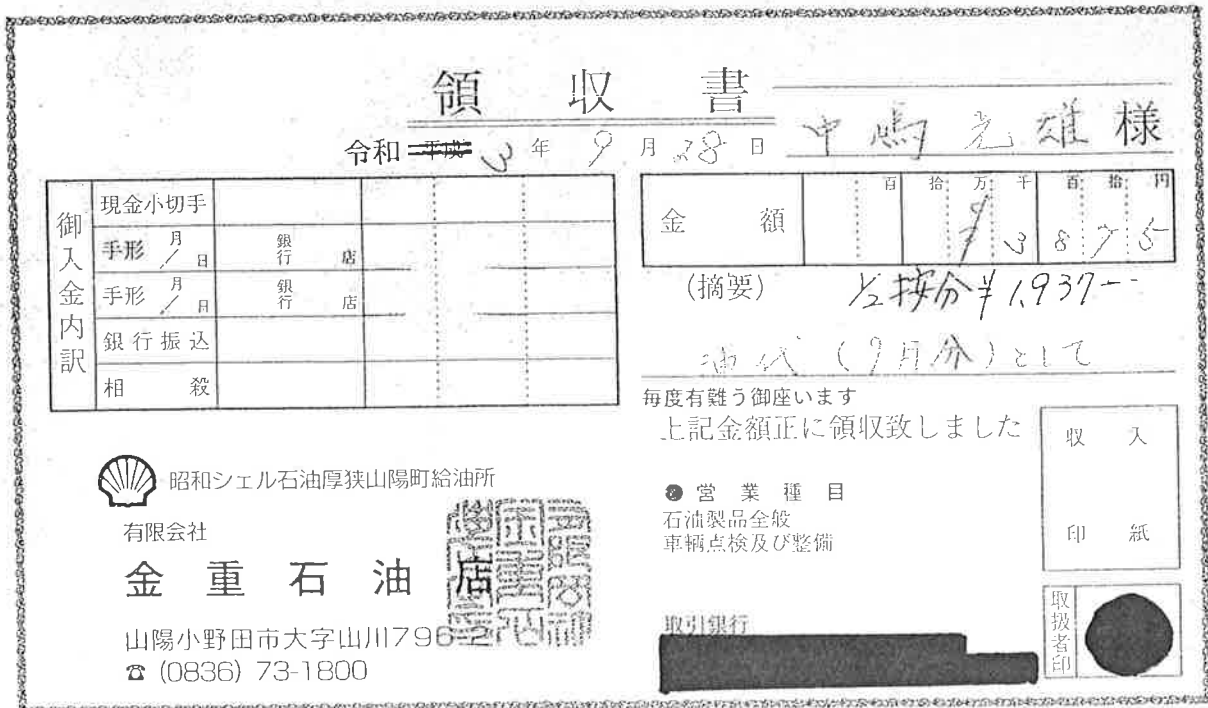 領収書
中嶋光雄様
令和 平成 3年9月28日
御入金内訳
現金小切手
手形 月/日 銀行 店
手形 月/日 銀行 店
銀行振込
相殺
百拾万千百拾円
金額 ¥3875
(摘要) 1/2按分¥1,937--
油代(9月分)として
毎度有難う御座います
上記金額正に領収致しました
収入
印紙
昭和シェル石油厚狭山陽町給油所
有限会社
金重石油店
山陽小野田市大字山川796-2
☎(0836)73-1800
営業種目
石油製品全般
車輌点検及び整備
取引銀行
取扱者印